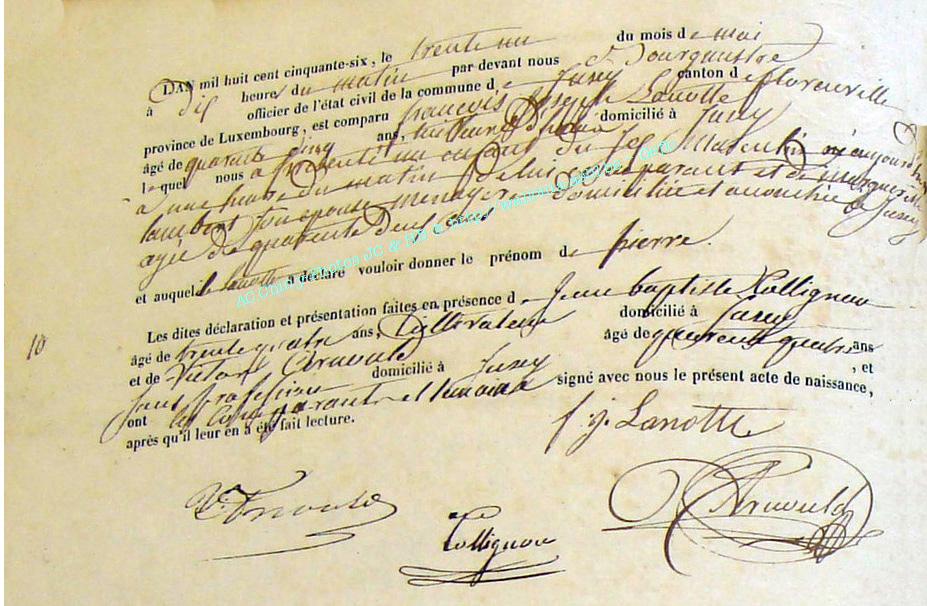 L'AN mil huit cent cinquante-six, le trente un du mois de mai
à dix heure du matin par devant nous Bourguestre
officier de l'état civil de la commune de Jusey canton de florenville
province de Luxembourg, est comparu françois Joseph Lanotte
âgé de quarante cinq ans, domicilié à Jusey
lequel nous a présenté un enfant du sexe Masculin né aujourd'hui
à une heure du matin de lui comparant et de marguerite
lambert son epouse menagere domiciliée et accouchée à Jusey
agée de quarante deux ans
et auquel le lanotte a déclaré vouloir donner le prénom de pierre.
Les dites déclaration et présentation faites en présence de Jean baptiste Collignon
âgé de trente quatre ans, Cultivateur domicilié à Jusey
et de Victor Arnould âgé de quarente quatre ans
sans profession domicilié à Jusey , et
ont les comparants et temoins signé avec nous le présent acte de naissance,
après qu'il leur en a été fait lecture.
10
f. j. Lanotte
V. Arnould
Collignon
Arnould
AC Copyright